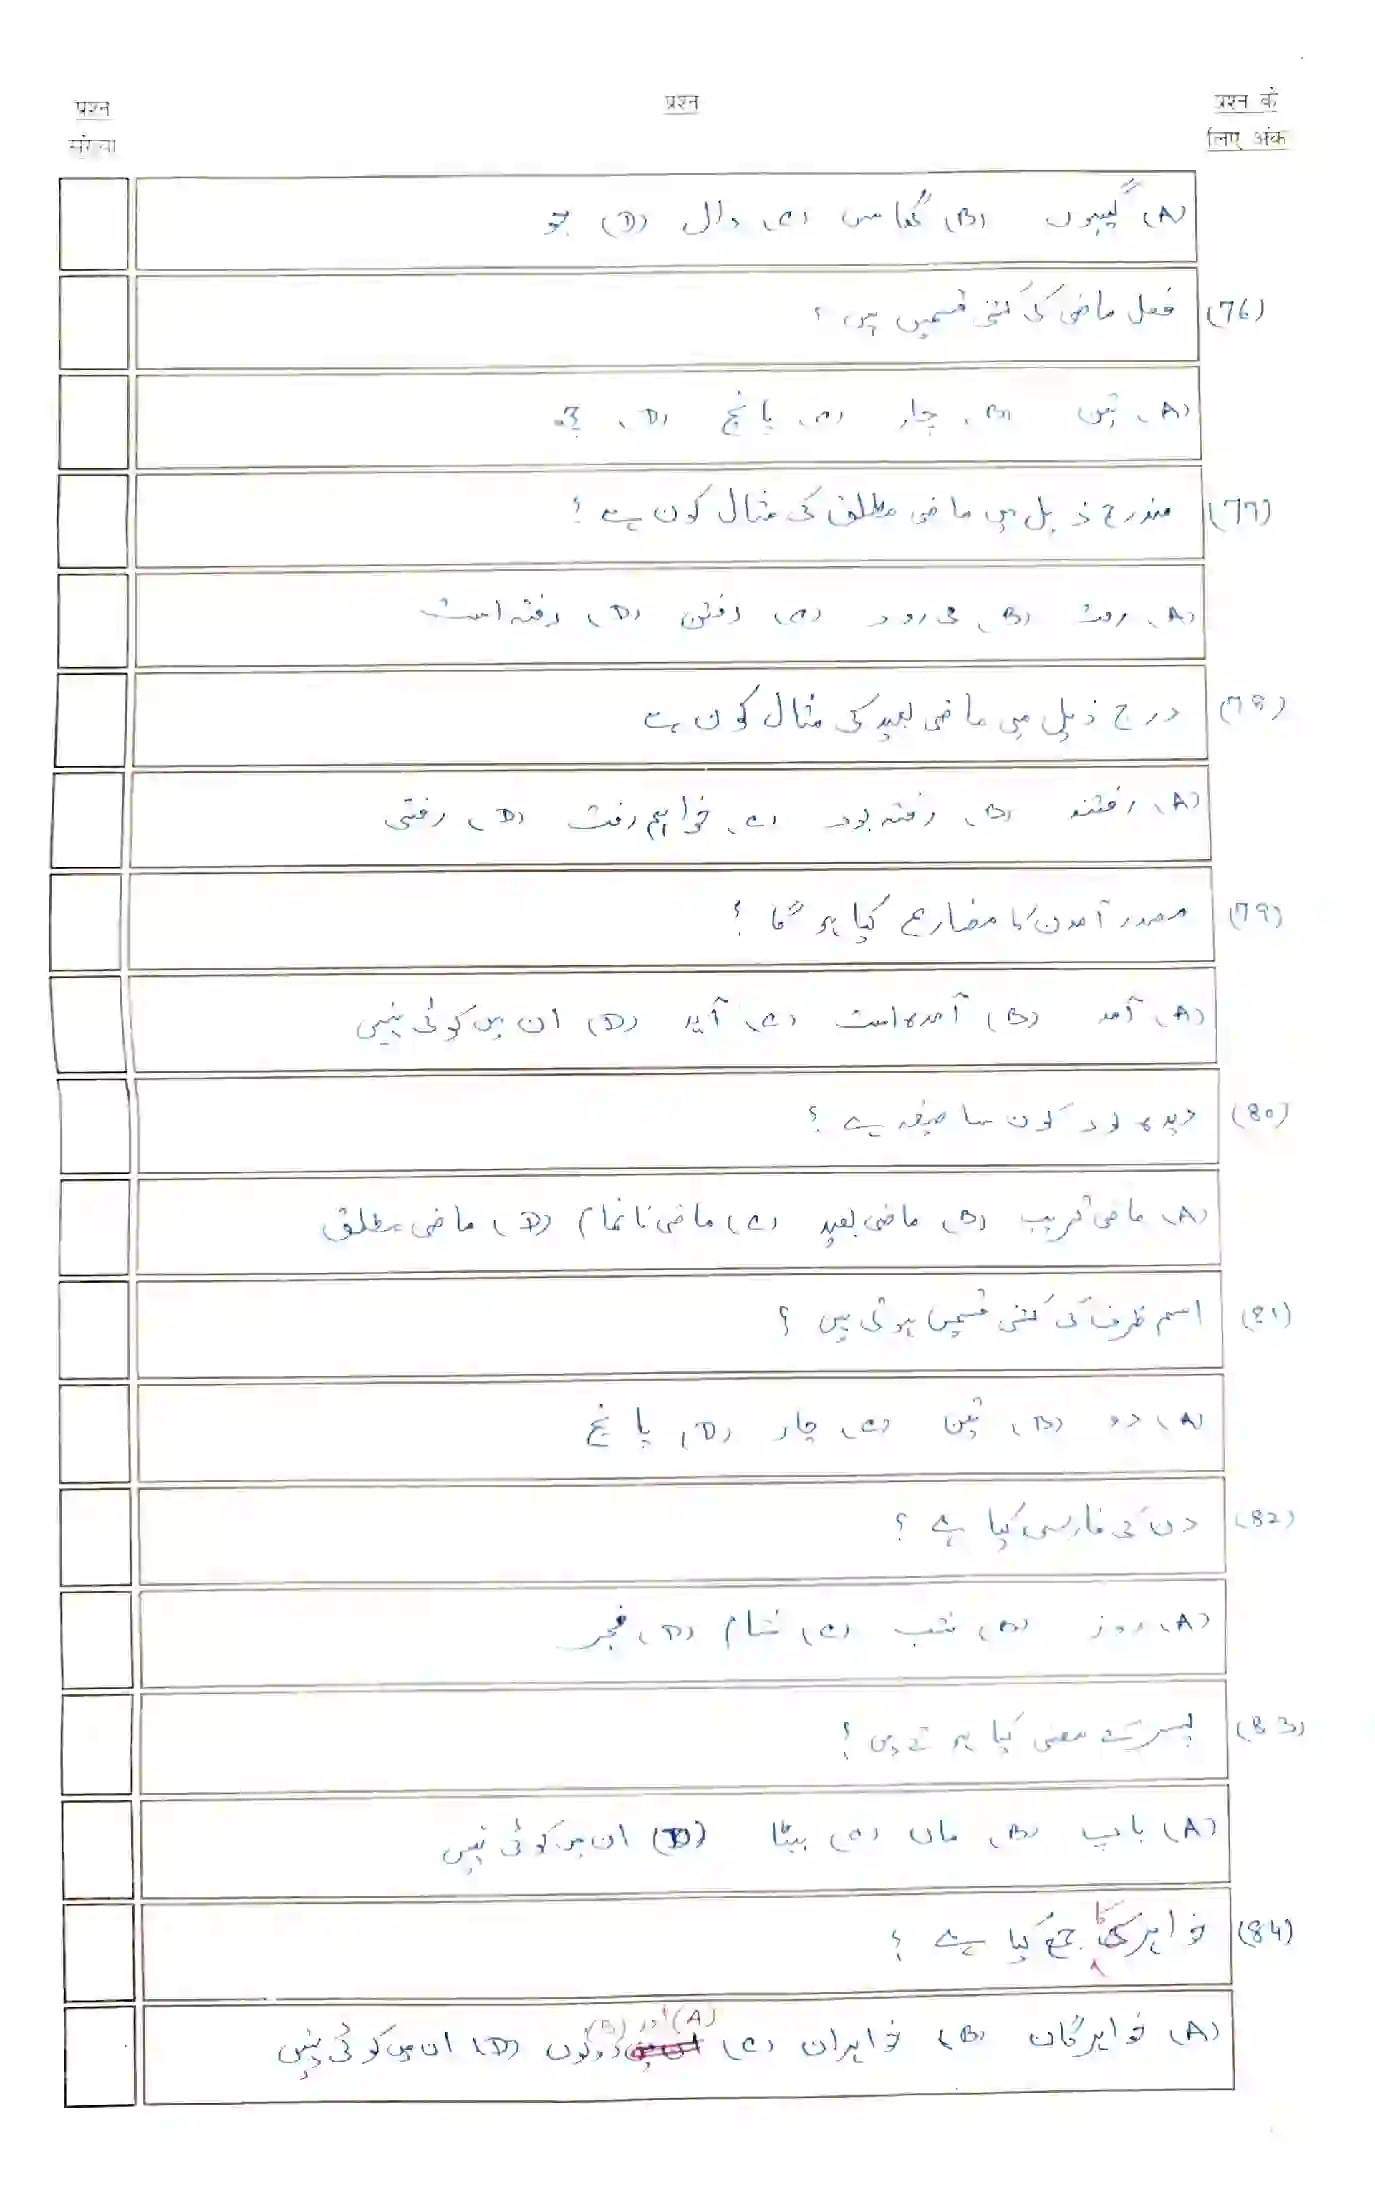 प्रश्न संख्या
प्रश्न
प्रश्न के लिए अंक
(A) گیہوں (B) گھاس (C) دال (D) جو
(76) فعل ماضی کی کتنی قسمیں ہیں ؟
(A) تین (B) چار (C) پانچ (D) چھ
(77) مندرج ذیل میں ماضی مطلق کی مثال کون ہے ؟
(A) رفت (B) می رود (C) رفتن (D) رفتہ است
(78) درج ذیل میں ماضی بعید کی مثال کون ہے
(A) رفتند (B) رفتہ بود (C) خواہم رفت (D) رفتی
(79) مصدر آمدن کا مضارع کیا ہوگا ؟
(A) آمد (B) آمدہ است (C) آید (D) ان میں کوئی نہیں
(80) دیدہ بود کون سا صیغہ ہے ؟
(A) ماضی قریب (B) ماضی بعید (C) ماضی ناتمام (D) ماضی مطلق
(81) اسم ظرف کی کتنی قسمیں ہوتی ہیں ؟
(A) دو (B) تین (C) چار (D) پانچ
(82) دن کی فارسی کیا ہے ؟
(A) روز (B) شب (C) شام (D) فجر
(83) پسر کے معنی کیا ہوتے ہیں ؟
(A) باپ (B) ماں (C) بیٹا (D) ان میں کوئی نہیں
(84) خواہر کا جمع کیا ہے ؟
(A) خواہرگان (B) خواہران (C) (A) اور (B) دونوں (D) ان میں کوئی نہیں